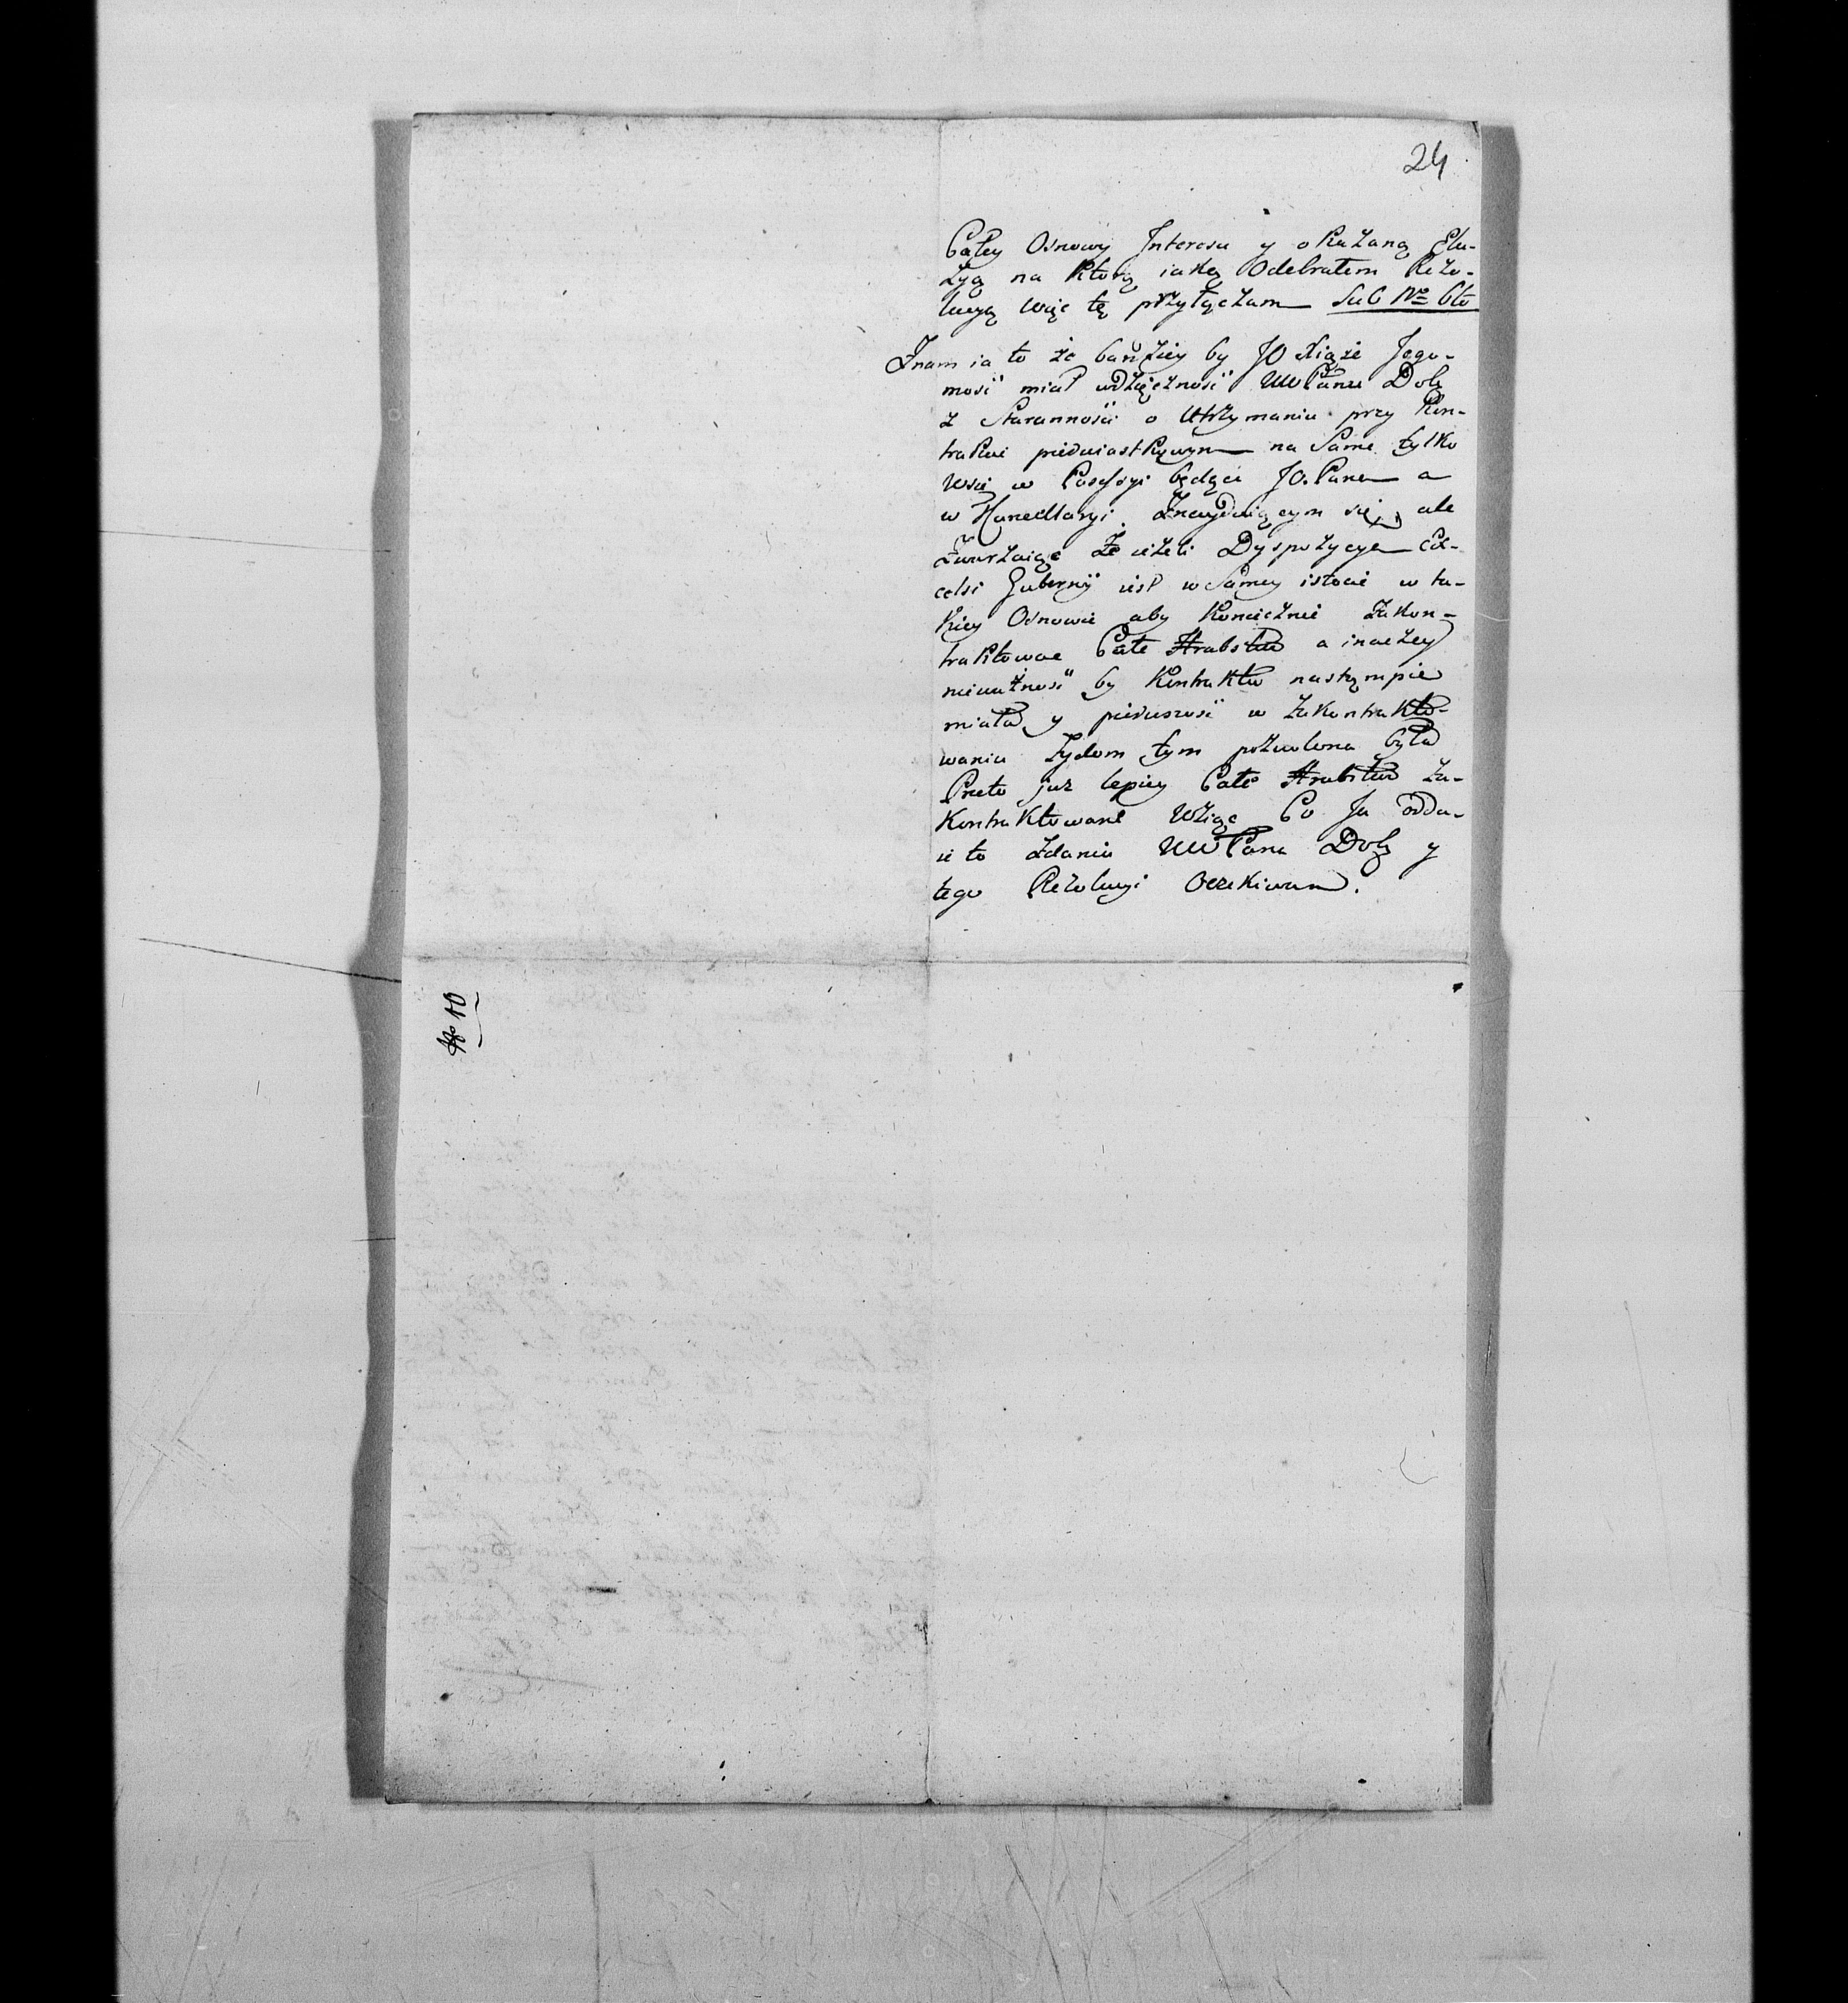 24
Całey Osnowy Interesu y okazaną Elu-
zyą na ktorą iaką Odebrałem Rezo-
lucyą więc tę przyłączam Sub Nro 6to
Znam ia to że bardziey by JO Xiąże Jego-
mość miał wdzięczność WWPanu Dob
z Staranności o Utrzymaniu przy Kon-
trakcie pierwiastkowym na Same tylko
Wsie w Possessyi będące JO. Pana a
w Harecllaryi Znayduiącym się, ale
Zwarzaiąc Ze ieżeli Dyspozycya Ex-
celsi Gubernij iest w Samey istocie w ta-
kiey Osnowie aby Koniecznie Zakon-
traktowac Całe Hrabstwo a inaczey
nieważność by Kontraktu nastąmpić
miała y pierwszość w Zakontrakto-
waniu Zydom tym pozwolona była
Przeto juz lepiey Całe Hrabstwo Za-
kontraktowane Wziąć Co Ja odda-
ie to Zdaniu WWPana Dob y
tego Rezolucyi Oczekiwam.
No 10